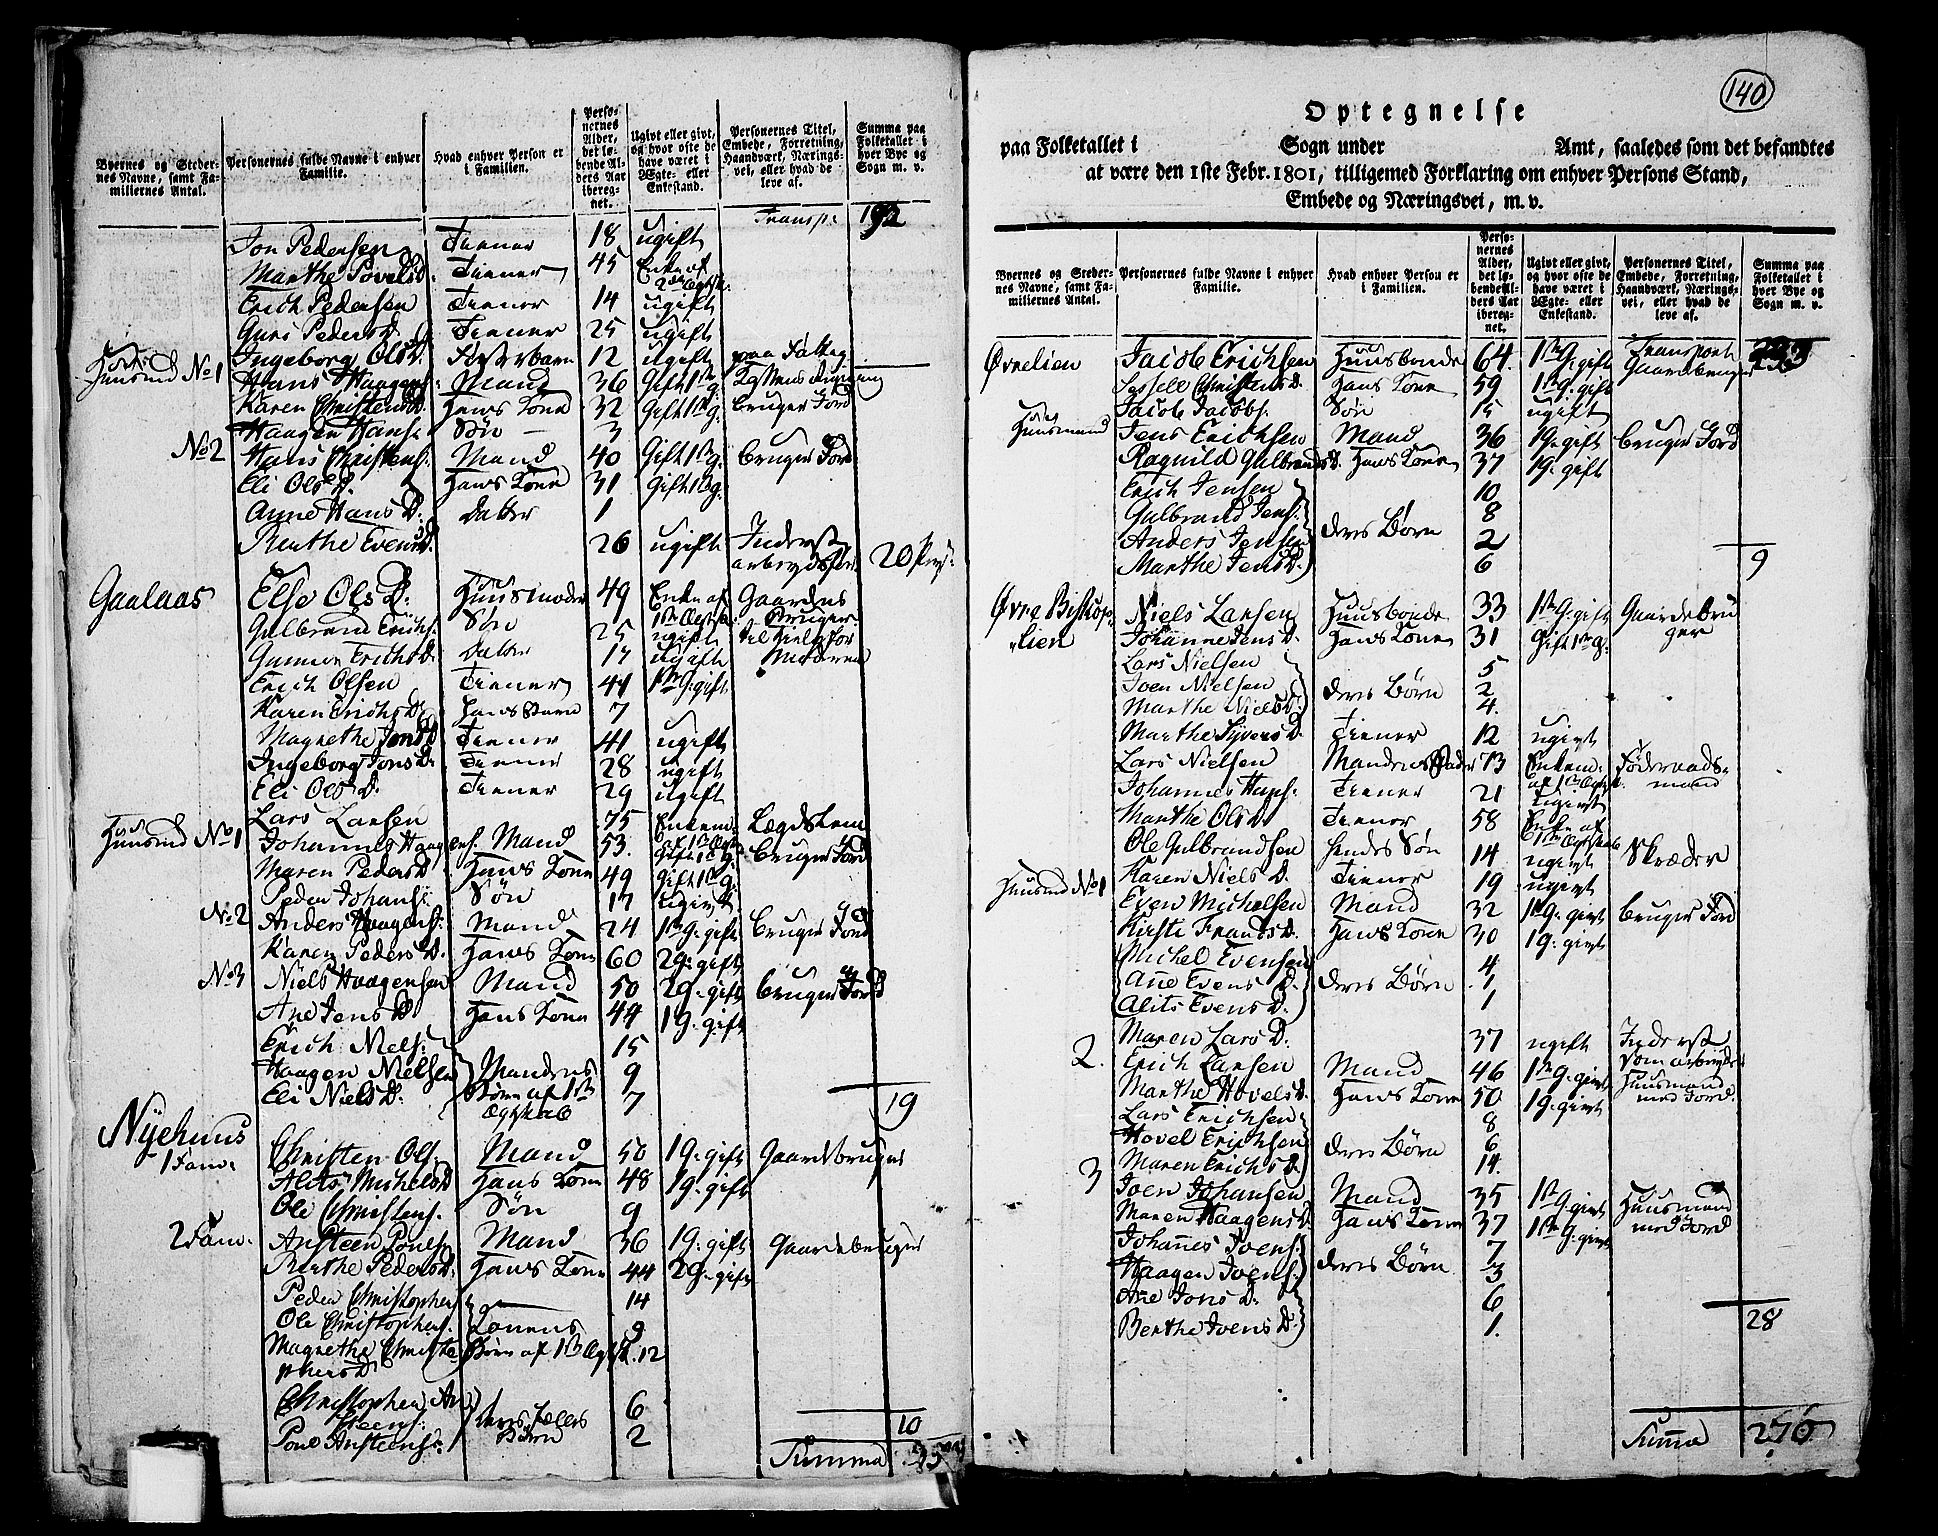 Byernes og Steder-
nes Navne, samt Fa-
miliernes Antal.
Personernes fulde Navne i enhver
Familie.
Hvad enhver Person er
i Familien.
Perso-
nernes
Alder,
det lø-
bende Al-
ders Aar
ibereg-
net.
Ugivt eller givt,
og hvor ofte de
have været i
Ægte- eller
Enkestand.
Personernes Titel,
Embede, Forretning,
Haandværk, Nærings-
vei, eller hvad de
leve af.
Summa paa
Folketallet i
hver Bye og
Sogn m. v.
Transp: 192
Jon Pedersen Tiener 18 ugift
Marthe Povelsd. Tiener 45 Enke af
Erich Pedersen Tiener 14 ugift
Guri Peders D. Tiener 25 ugift
Ingeborg Ols D. 12 ugift
Huusmd No 1 Hans Haagens: Mand 36 Gift 1ste g:
Karen Christens D. Hans Kone 32 Gift 1ste g: bruger Jord
Haagen Hans: Søn 3
No 2 Hans Christens: Mand 40 Gift 1ste g: bruger Jord
Eli Ols D. Hans Kone 31 Gift 1ste g:
Anne Hans D. Datter 1
Berthe Evens D. 26 ugift Inderst
20 Pers:
Gaalaas Else Ols D. Huusmoder 49 Enke af Gaardens
Gulbrand Erichs: Søn 25 ugift
Gunnor Erichs D. Datter 17 ugift Moderen
Erich Olsen Tiener 41 1ste G: gift
Karen Erichs D. Hans Barn 7
Magnethe Jons D. Tiener 41 ugift
Ingeborg Jons D. Tiener 28 ugift
Eli Ols D. Tiener 29 ugift
Lars Larsen 75 Enkem: Lægdslem
Huusmd No 1 Johannes Haagens. Mand 53. Gift 1ste g: bruger Jord
Maren Peders D. Hans Kone 49 Gift 1ste g:
Peder Johans: Søn 17 Ugivt
No 2 Anders Haagens: Mand 24 1ste g: gift bruger Jord
Karen Peders D. Hans Kone 60 2 g: gift
No 3 Niels Haagensen Mand 50 2 g: gift bruger Jord
Ane Jens D. Hans Kone 44 1 g: gift
Erich Niels: 15
Haagen Nielsen Mandens 9
Eli Niels D. Børn af 1ste 7
Ægteskab
19
Nÿehuus
1 Fam: Christen Ols: Mand 50 1 g: gift Gaardbruger
Alets Michels D. Hans Kone 48 1 g: gift
Ole Christens. Søn 9
2 Fam: Ansteen Pouls: Mand 36 1 g: gift Gaardebruger
Berthe Peders D. Hans Kone 44 2 g: gift
Peder Christophers. 14
Ole Christophers. Konens 9
Magnethe Christo- Børn af 1ste 12
phers D.
Christopher An- 6
steens: deres Fælles
Poul Ansteens: Børn 2
10
Summa
140
Optegnelse
paa Folketallet i Sogn under Amt, saaledes som det befandtes
at være den 1ste Febr. 1801, tilligemed Forklaring om enhver Persons Stand,
Embede og Næringsvei, m. v.
Byernes og Steder-
nes Navne, samt Fa-
miliernes Antal.
Personernes fulde Navne i enhver
Familie.
Hvad enhver Person er
i Familien.
Perso-
nernes
Alder,
det lø-
bende Al-
ders Aar
ibereg-
net.
Ugivt eller givt,
og hvor ofte de
have været i
Ægte- eller
Enkestand.
Personernes Titel,
Embede, Forretning,
Haandværk, Nærings-
vei, eller hvad de
leve af.
Summa paa
Folketallet i
hver Bye og
Sogn m. v.
Transport
Øvrelien Jacob Erichsen Huusbonde 64. 1ste G: gift Gaardebruger
Sessele Christens D. Hans Kone 59 1ste G: gift
Jacob Jacobs. Søn 15 ugift
Huusmand Jens Erichsen Mand 36 1 g: gift bruger Jord
Ragnild Gulbrands D. Hans Kone 37 1 g: gift
Erich Jensen 10
Gulbrand Jens: 8
Anders Jensen deres Børn 2
Marthe Jens D. 6
9
Øvre Biskop- Niels Larsen Huusbonde 33 1ste G: gift Gaardebru
lien Johanne Jens D. Hans Kone 31 Gift 1ste g: ger
Lars Nielsen 5
Joen Nielsen deres Børn 2
Marthe Niels D. 4.
Marthe Syvers D. Tiener 12 ugivt
Lars Nielsen Mandens Fader 73 Enkem: Føderaads-
mand
Johannes Hans: Tiener 21 Ugivt
Marthe Ols D. Tiener 58 Enke af
Ole Gulbrandsen Hendes Søn 14 ugivt Skræder
Karen Niels D. Tiener 19 ugivt
Huusmd No 1 Even Michelsen Mand 32 1 G: givt bruger Jord
Kirsti Frands D. Hans Kone 30 1 G: givt
Michel Evensen 4
Ane Evens D. deres Børn 1
Alits Evens D. 1
Maren Lars D. 37 ugift Inderst
2. Erich Larsen Mand 46 1ste G: givt Huusmand
Marthe Hovels D. Hans Kone 50 1 g: givt med Jord.
Lars Erichsen 8
Hovel Erichsen deres Børn 6
Maren Erichs D. 14.
3 Joen Johansen Mand 35 1ste G: givt Huusmand
Maren Haagens D. Hans Kone 37 1ste G: givt med Jord
Johannes Joens: 7
Haagen Joens: deres Børn 3
Ane Jons D. 6
Berthe Joens D. 1.
28
Summa 276